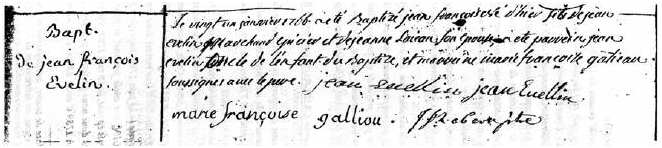 Bapt.
De jean françois
Evelin.
Le vingt un janvier 1766 a été Baptizé jean françois né d'hier fils de jean
evelin Marchand Epicier et de jeanne son Epouse a été parrein jean
evelin oncle de l'enfant du Baptizé, et marreine marie françoise galliou.
soussignés avec le pere. jean evellin jean Evellin
marie françoise galliou.